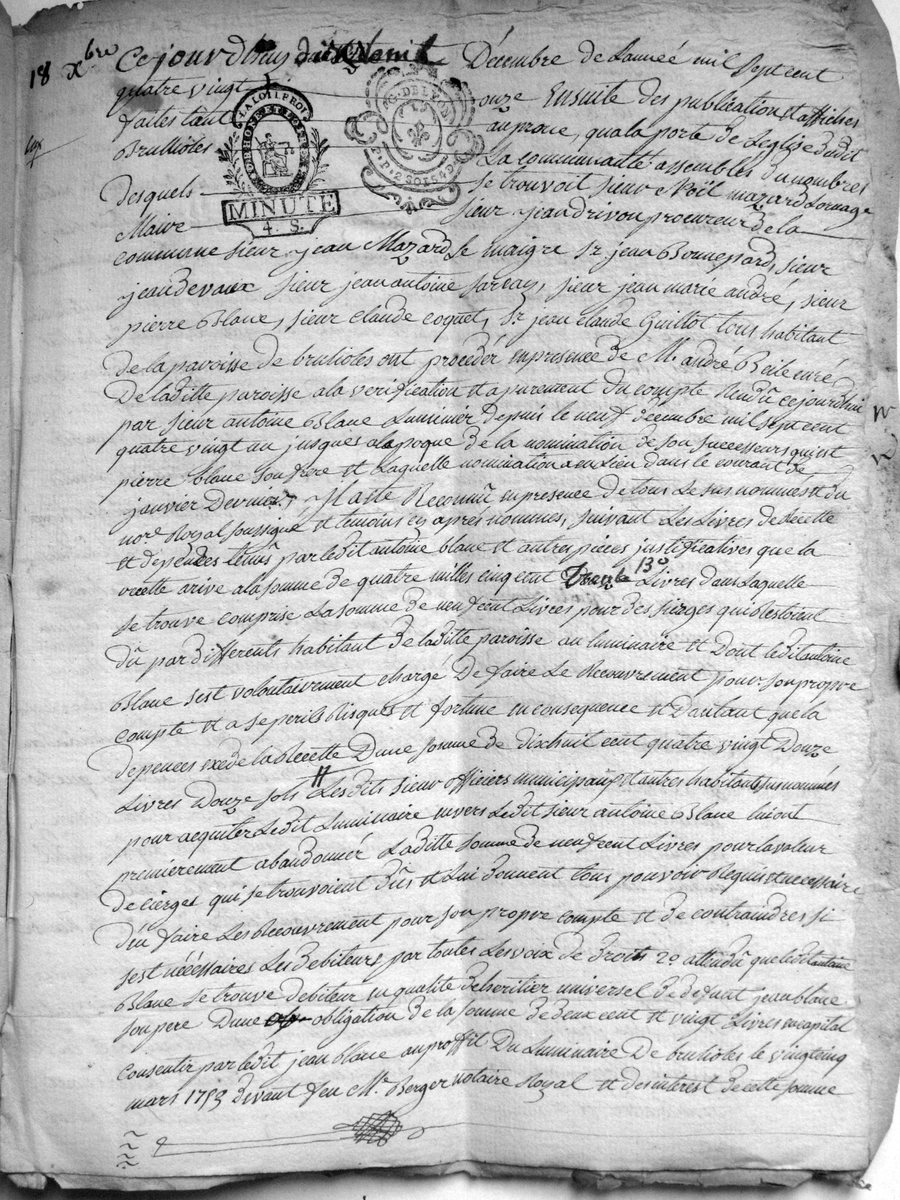 18 Xbre
Ce jourdhuy dix huit Décembre de Lanneé mil Sept cent
quatre vingt onze Ensuite des publication et affiches
faites tant au prone, qua la porte de Leglise dudit
Brullioles La communauté assembleé du nombres
Desquels se trouvoit sieur Noël mazard Lornage
Maire sieur jean drivon procureur de la
LA LOI
RHONE ET LOIRE
MINUTE
4. S.
G. DE LYON
commune sieur jean Mazard le maigre Sr jean Bonnepard, sieur
jean devaux sieur jean antoine sarvay, sieur jean marie andré, sieur
pierre Blanc, sieur claude coquet, Sr jean claude Guillot tous habitant
de la paroisse de brulioles ont procéder en presence de Mr andré Beile curé
De laditte paroisse a la verification et apurement du compte Rendû cejourdhui
par sieur antoine Blanc Luminier depuis le neuf decembre mil sept cent
quatre vingt un jusques a lepoque de la nomination de son successeur qui est
pierre blanc son frere et Laquelle nomination a eu Lieu dans le courant de
janvier Dernier, Il a été Reconnû en presence de tous Les sus nommés et du
nore Royal soussigné et temoins cy après nommés, suivant Les Livres de Recette
et depences tenûs par ledit antoine blanc et autres pièces justificatives que la
recette arive a la somme de quatre milles cinq cent trente 130 Livres dans Laquelle
se trouve comprise La somme de neuf cent Livres pour des sierges qui restoient
dû par differents habitant de laditte paroisse au luminaire et Dont ledit antoine
Blanc sest volontairement chargé De faire Le Recouvrement pour son propre
compte et a se perils Risques et fortune en consequence et Dautant que la
depences exede la Recette Dune somme de dixhuit cent quatre vingt Douze
Livres Douze sols Lesdits sieur officiers municipaux et autres habitants susnommés
pour acquiter Ledit Luminaire envers Ledit sieur antoine Blanc lui ont
premierement abandonner Laditte somme de neuf cent Livres pour la valeur
De cierges qui se trouvoient dûs et Lui Donnent tous pouvoir Requis et necessaire
d'en faire Les Recouvrement pour son propre compte et de contraindres si
sest nécéssaires Les debiteurs par toutes Les voix de droits 2o attendû que ledit antoine
Blanc se trouve debiteur en qualité dheritier universel de defunt jean blanc
son pere Dune obligation de la somme de deux cent et vingt Livres en capital
consentir par ledit jean blanc au proffit Du Luminaire De brulioles le vingt cinq
mars 1753 devant feu Me Berger notaire Royal et des interest de cette somme